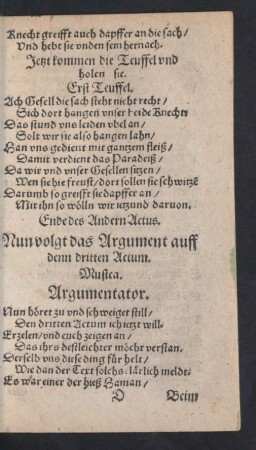 Knecht greifft auch dapffer an die sach/
Vnd hebt sie vnden fein hernach.
Jetzt kommen die Teuffel vnd
holen sie.
Erst Teuffel.
Ach Gesell die sach steht nicht recht/
Sich dort hangen vnser beide Knecht
Das stund vns leiden vbel an/
Solt wir sie also hangen lahn/
Han vns gedient mit gantzem fleiß/
Damit verdient das Paradeiß/
Da wir vnd vnser Gesellen sitzen/
Wen sie hie freust/ dort sollen sie schwitzẽ
Darumb so greifft sie dapffer an/
Mit ihn so wölln wir ietzund daruon.
Ende des Andern Actus.
Nun volgt das Argument auff
denn dritten Actum.
Musica.
Argumentator.
Nun höret zu vnd schweiget still/
Den dritten Actum ich ietzt will
Erzelen/ vnd euch zeigen an/
Das ihrs destleichter möcht verstan.
Derselb vns diese ding für helt/
Wie dan der Text solchs klärlich meldt
Es war einer der hieß Haman/
D Beim